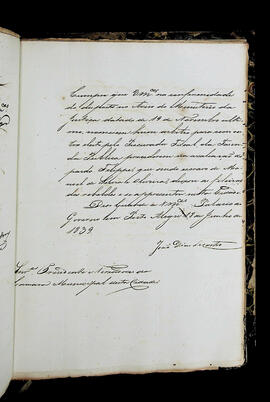 Cumpre que V.Mces na conformidade
do disposto no Aviso do Ministerio da
Justiça datado de 19 de Novembro ulti-
mo, nomeiem hum arbitro para com o
eleito pelo Procurador Fiscal da Fazen-
da Publica procederem da avaliação do
pardo Felippe, que sendo escravo de Ma-
noel de
os rebeldes e se apresentou nesta
Deos Guarde a V.Mces. Palacio do
Governo em Porto Alegre 17 de Junho de
1839
João Dias
Snres. Presidente e Vereadores da
Camara Municipal desta Cidade